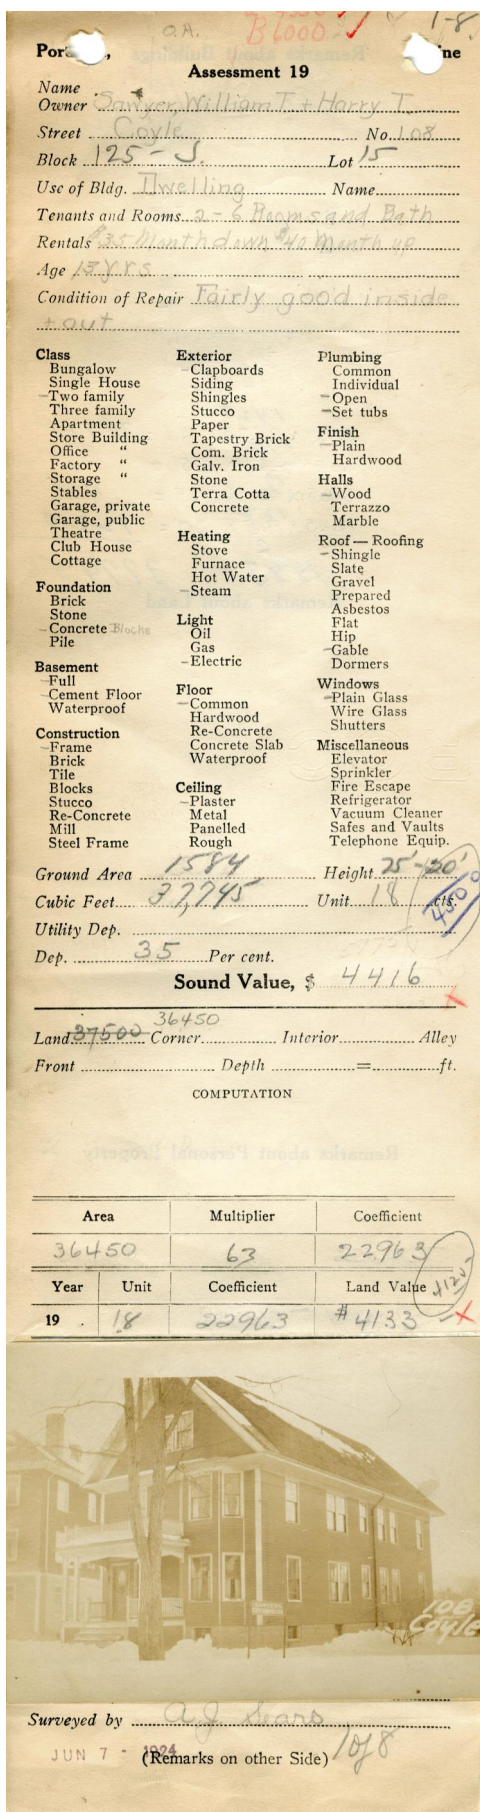 O.A. BLOOD 1-8
Por , ine
Assessment 19
Name
Owner Sawyer, William T. + Harry T.
Street Coyle No. 108
Block 125-J. Lot 15
Use of Bldg. Dwelling Name
Tenants and Rooms 2-6 Rooms and Bath
Rentals $35 Month down $40 Month up
Age 13 yrs
Condition of Repair Fairly good inside
+ out
Class
Bungalow
Single House
-Two family
Three family
Apartment
Store Building
Office "
Factory "
Storage "
Stables
Garage, private
Garage, public
Theatre
Club House
Cottage
Foundation
Brick
Stone
-Concrete Blocks
Pile
Basement
-Full
-Cement Floor
Waterproof
Construction
-Frame
Brick
Tile
Blocks
Stucco
Re-Concrete
Mill
Steel Frame
Exterior
-Clapboards
Siding
Shingles
Stucco
Paper
Tapestry Brick
Com. Brick
Galv. Iron
Stone
Terra Cotta
Concrete
Heating
Stove
Furnace
Hot Water
-Steam
Light
Oil
Gas
-Electric
Floor
-Common
Hardwood
Re-Concrete
Concrete Slab
Waterproof
Ceiling
-Plaster
Metal
Panelled
Rough
Plumbing
Common
Individual
-Open
-Set tubs
Finish
-Plain
Hardwood
Halls
-Wood
Terrazzo
Marble
Roof — Roofing
-Shingle
Slate
Gravel
Prepared
Asbestos
Flat
Hip
-Gable
Dormers
Windows
-Plain Glass
Wire Glass
Shutters
Miscellaneous
Elevator
Sprinkler
Fire Escape
Refrigerator
Vacuum Cleaner
Safes and Vaults
Telephone Equip.
Ground Area 1584 Height 25'-20'
Cubic Feet 37,745 Unit 18 cts.
4500
Utility Dep.
Dep. 35 Per cent.
Sound Value, $ 4416
36450
Land 37500 Corner Interior Alley
Front Depth = ft.
COMPUTATION
Area Multiplier Coefficient
36450 63 22963
Year Unit Coefficient Land Value
19 18 22963 $4133
108
Coyle
Surveyed by A. J. Sears
JUN 7 - 1924 (Remarks on other Side) 1 of 8